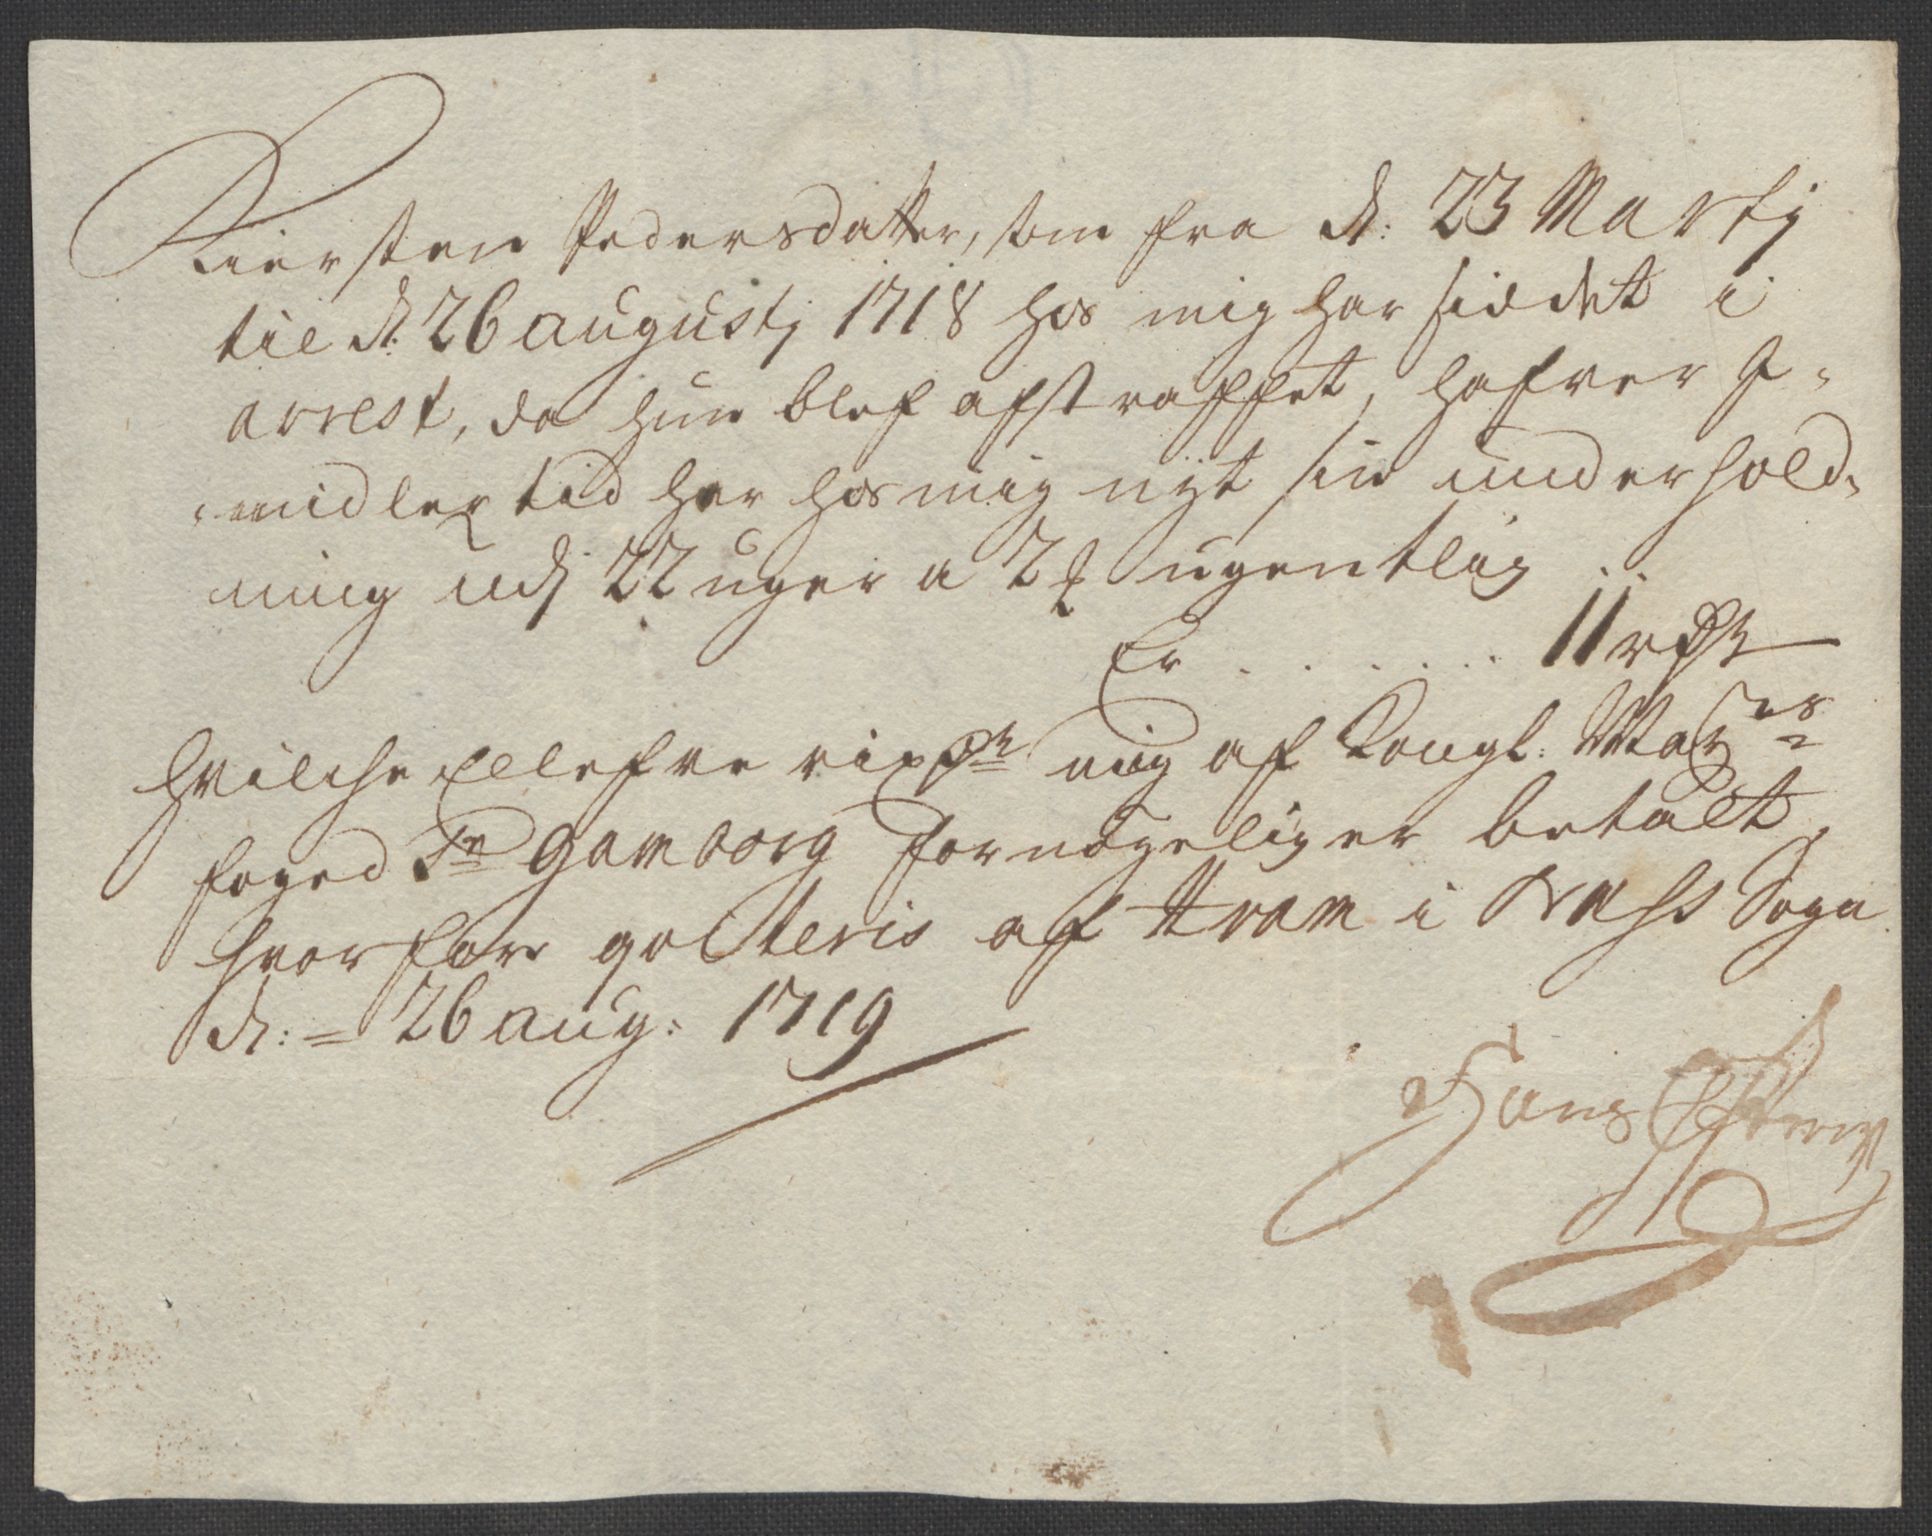 Kiersten Pedersdatter, som fra d: 23 Martj
til d. 26 augustj 1718 hos mig har siddet i
arrest, da hun blef afstraffet, hafver I-
-midlertid her hos mig nyt sin underhold-
ning udj 22 uger a 2 ugentlig
Er . . . . . . 11 rdr
hvilche Ellefve rix dr mig af Kongl: May:es
foged Sr Gamborg fornøyelig er betalt,
hvorfore qvitteris af i Sogn
d: = 26 aug: 1719
Hans